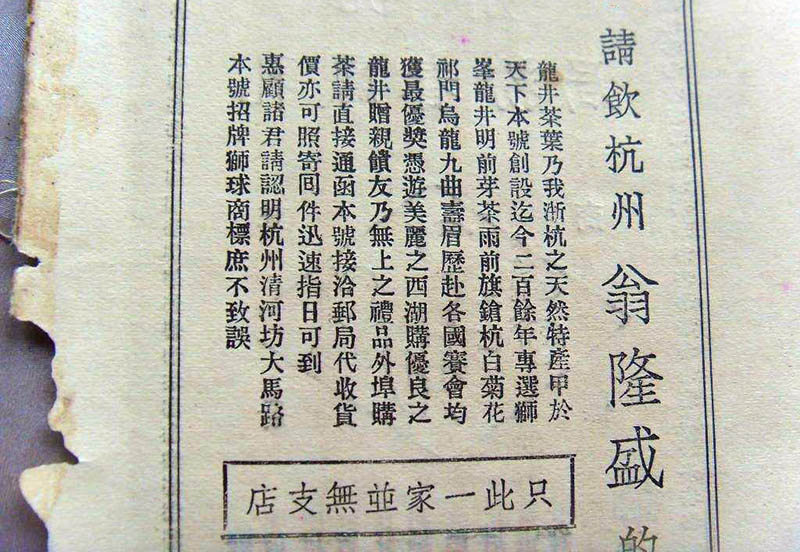 請飲杭州翁隆盛的
龍井茶葉乃我浙杭之天然特產甲於
天下本號創設迄今二百餘年專選獅
峯龍井明前芽茶雨前旗鎗杭白菊花
祁門烏龍九曲壽眉歷赴各國賽會均
獲最優獎憑遊美麗之西湖購優良之
龍井贈親饋友乃無上之禮品外埠購
茶請直接通函本號接洽郵局代收貨
價亦可照寄回件迅速指日可到
惠顧諸君請認明杭州清河坊大馬路
本號招牌獅球商標庶不致誤
只此一家並無支店